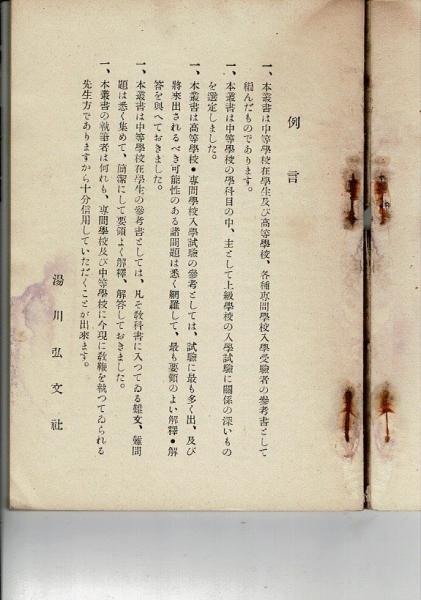 例言
一、本叢書は中等學校在學生及び高等學校、各種專門學校入學受驗者の參考書として
編んだものであります。
一、本叢書は中等學校の學科目の中、主として上級學校の入學試驗に關係の深いもの
を選定しました。
一、本叢書は高等學校•專門學校入學試驗の參考としては、試驗に最も多く出、及び
將來出されるべき可能性のある諸問題は悉く網羅して、最も要領のよい解釋•解
答を與へておきました。
一、本叢書は中等學校在學生の參考書としては、凡そ敎科書に入つてゐる難文、難問
題は悉く集めて、簡潔にして要領よく解釋、解答しておきました。
一、本叢書の執筆者は何れも、專門學校及び中等學校に今現に敎鞭を執つてゐられる
先生方でありますから十分信用していただくことが出來ます。
湯川弘文社